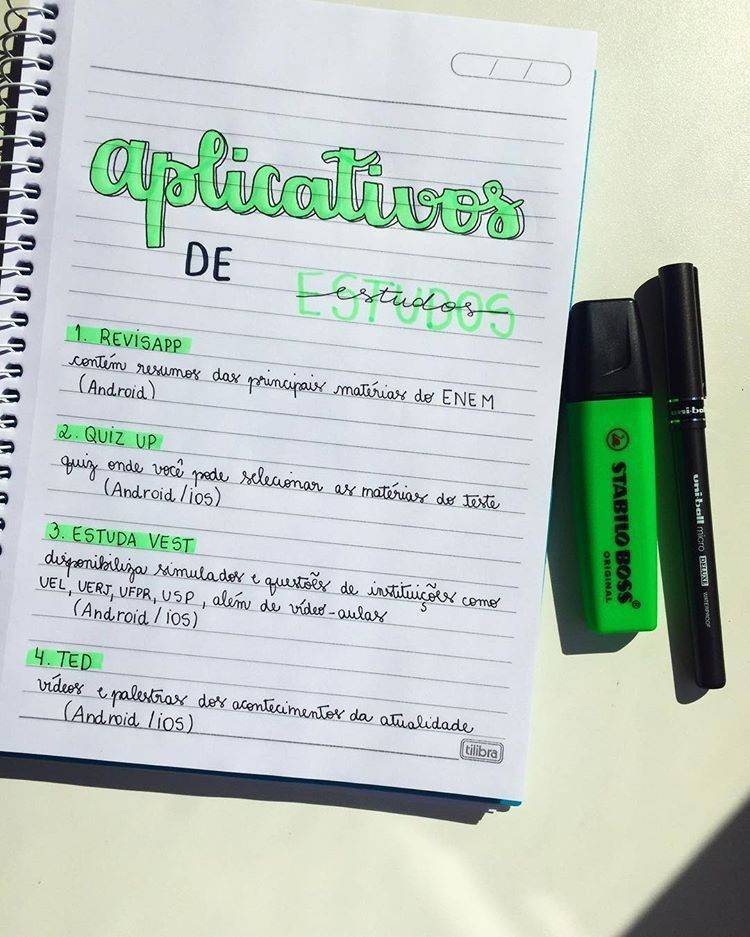 aplicativos
DE
ESTUDOS
estudos
1. REVISAPP
contém resumos das principais matérias do ENEM
(Android)
2. QUIZ UP
quiz onde você pode selecionar as matérias do teste
(Android/iOS)
3. ESTUDA VEST
disponibiliza simulados e questões de instituições como
UEL, UERJ, UFPR, USP, além de vídeo-aulas
(Android/iOS)
4. TED
vídeos e palestras dos acontecimentos da atualidade
(Android/iOS)
tilibra
STABILO BOSS®
ORIGINAL
uni-ball
uni-ball micro DELUXE WATERPROOF